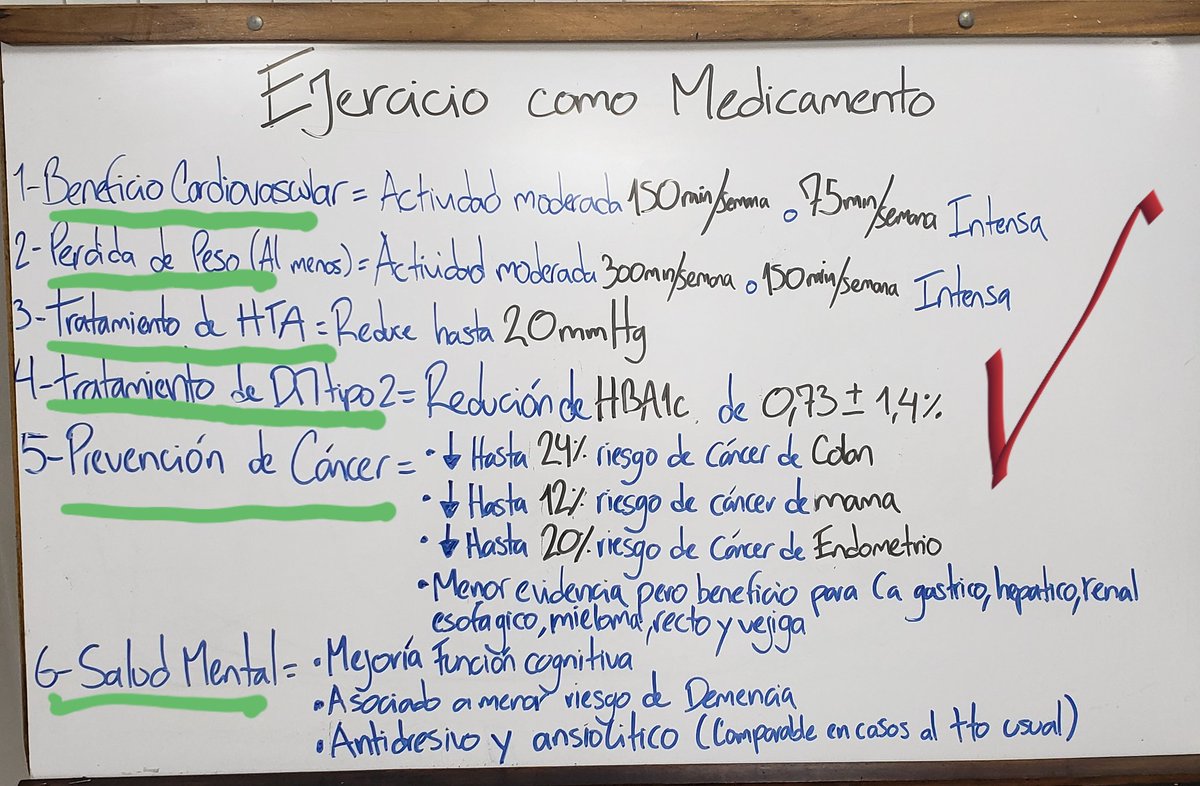 Ejercicio como Medicamento
1-Beneficio Cardiovascular = Actividad moderada 150min/semana o 75min/semana Intensa
2-Perdida de Peso (Al menos) = Actividad moderada 300min/semana o 150min/semana Intensa
3-Tratamiento de HTA = Reduce hasta 20mmHg
4-tratamiento de DM tipo 2 = Redución de HBA1c. de 0,73 ± 1,4%
5-Prevención de Cáncer = • ↓ Hasta 24% riesgo de cáncer de Colon
• ↓ Hasta 12% riesgo de cáncer de mama
• ↓ Hasta 20% riesgo de cáncer de Endometrio
• Menor evidencia pero beneficio para Ca gastrico, hepatico, renal
esofagico, mieloma, recto y vejiga
6-Salud Mental = • Mejoría Función cognitiva
• Asociado a menor riesgo de Demencia
• Antidresivo y ansiolitico (Comparable en casos al tto usual)